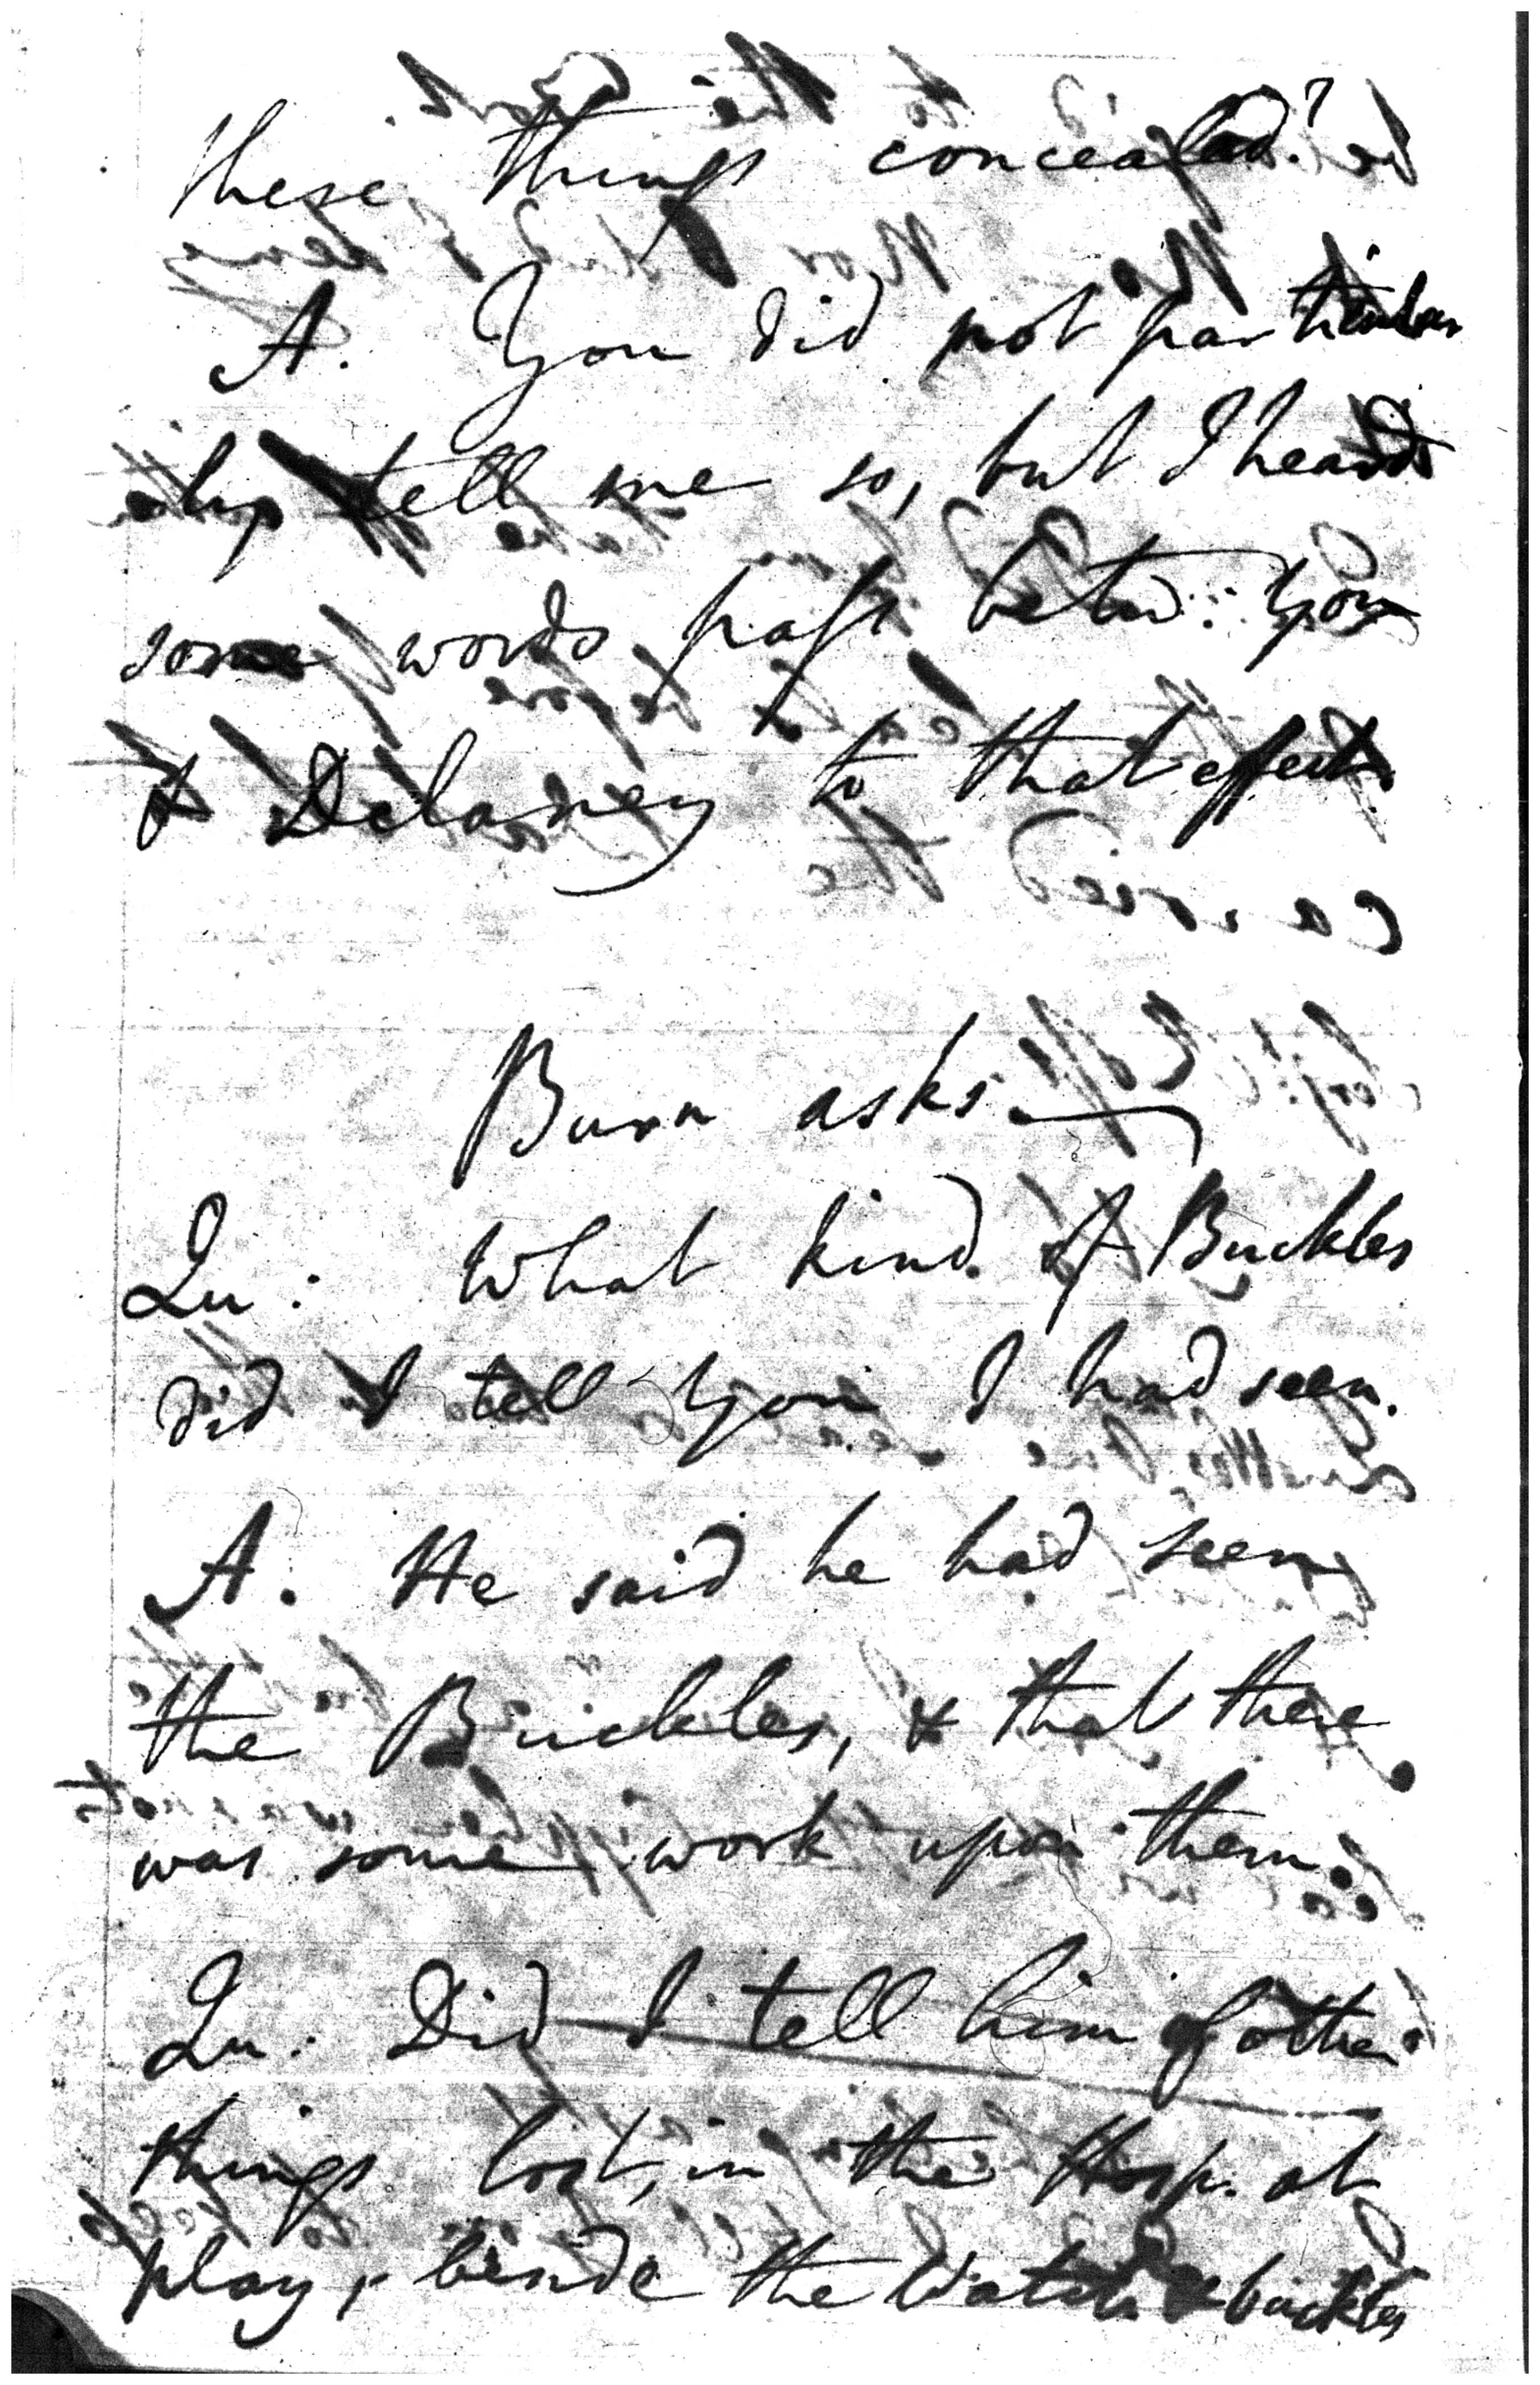 these things concealed?
A. You did not particular
ly tell me so, but I heard
some words pass betw: you
& Delaney to that effect.
Burn asks.
Qu: What kind of Buckles
did I tell You I had seen.
A. He said he had seen
the Buckles, & that there
was some work upon them.
Qu: Did I tell him of other
things lost, in the Hosp. at
play, beside the Watch & buckles